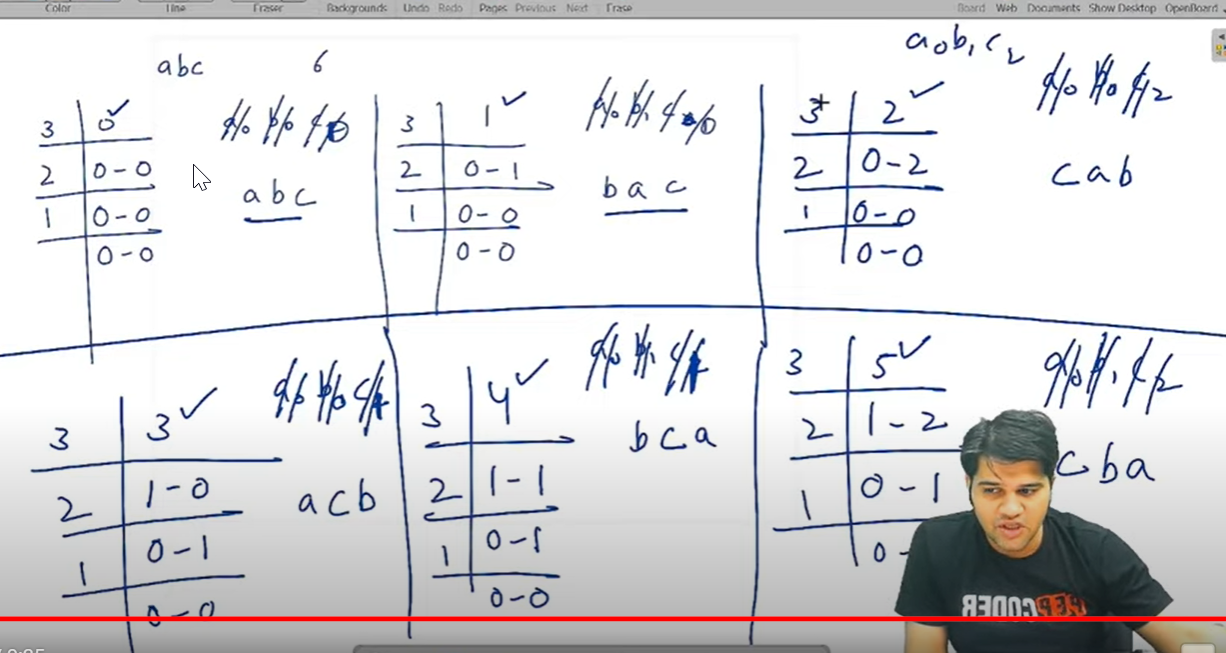 Color Line Eraser Backgrounds Undo Redo Pages Previous Next Erase Board Web Documents Show Desktop OpenBoard
abc 6
3 0 ✓
2 0-0
1 0-0
0-0
abc
3 1 ✓
2 0-1
1 0-0
0-0
bac
a0b1c2
3 2 ✓
2 0-2
1 0-0
0-0
cab
3 3 ✓
2 1-0
1 0-1
0-0
acb
3 4 ✓
2 1-1
1 0-1
0-0
bca
3 5 ✓
2 1-2
1 0-1
0-
cba
PEPCODER